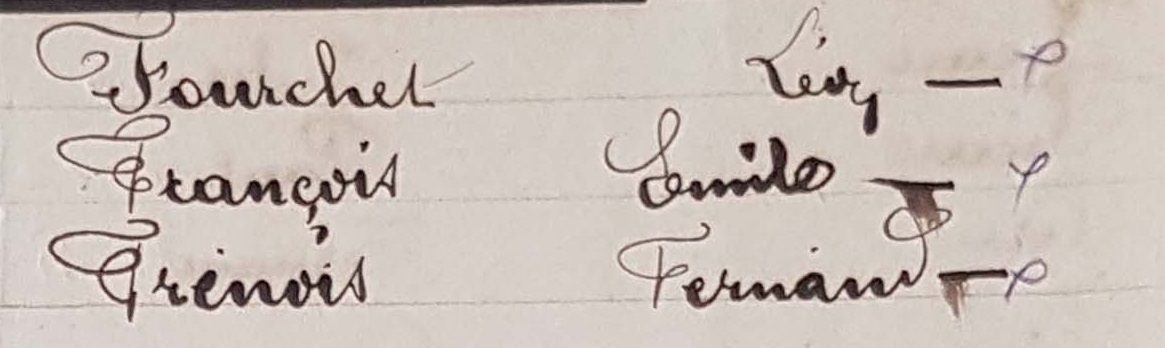 Fourchet Léon —
François Emile —
Frénois Fernand —